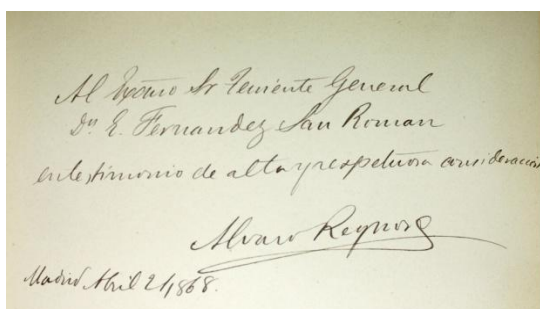 Al Exc̃mo Sr Teniente General
Dn E. Fernandez San Roman
en testimonio de alta y respetuosa consideracion
Alvaro Reynoso
Madrid Abril 21/868.